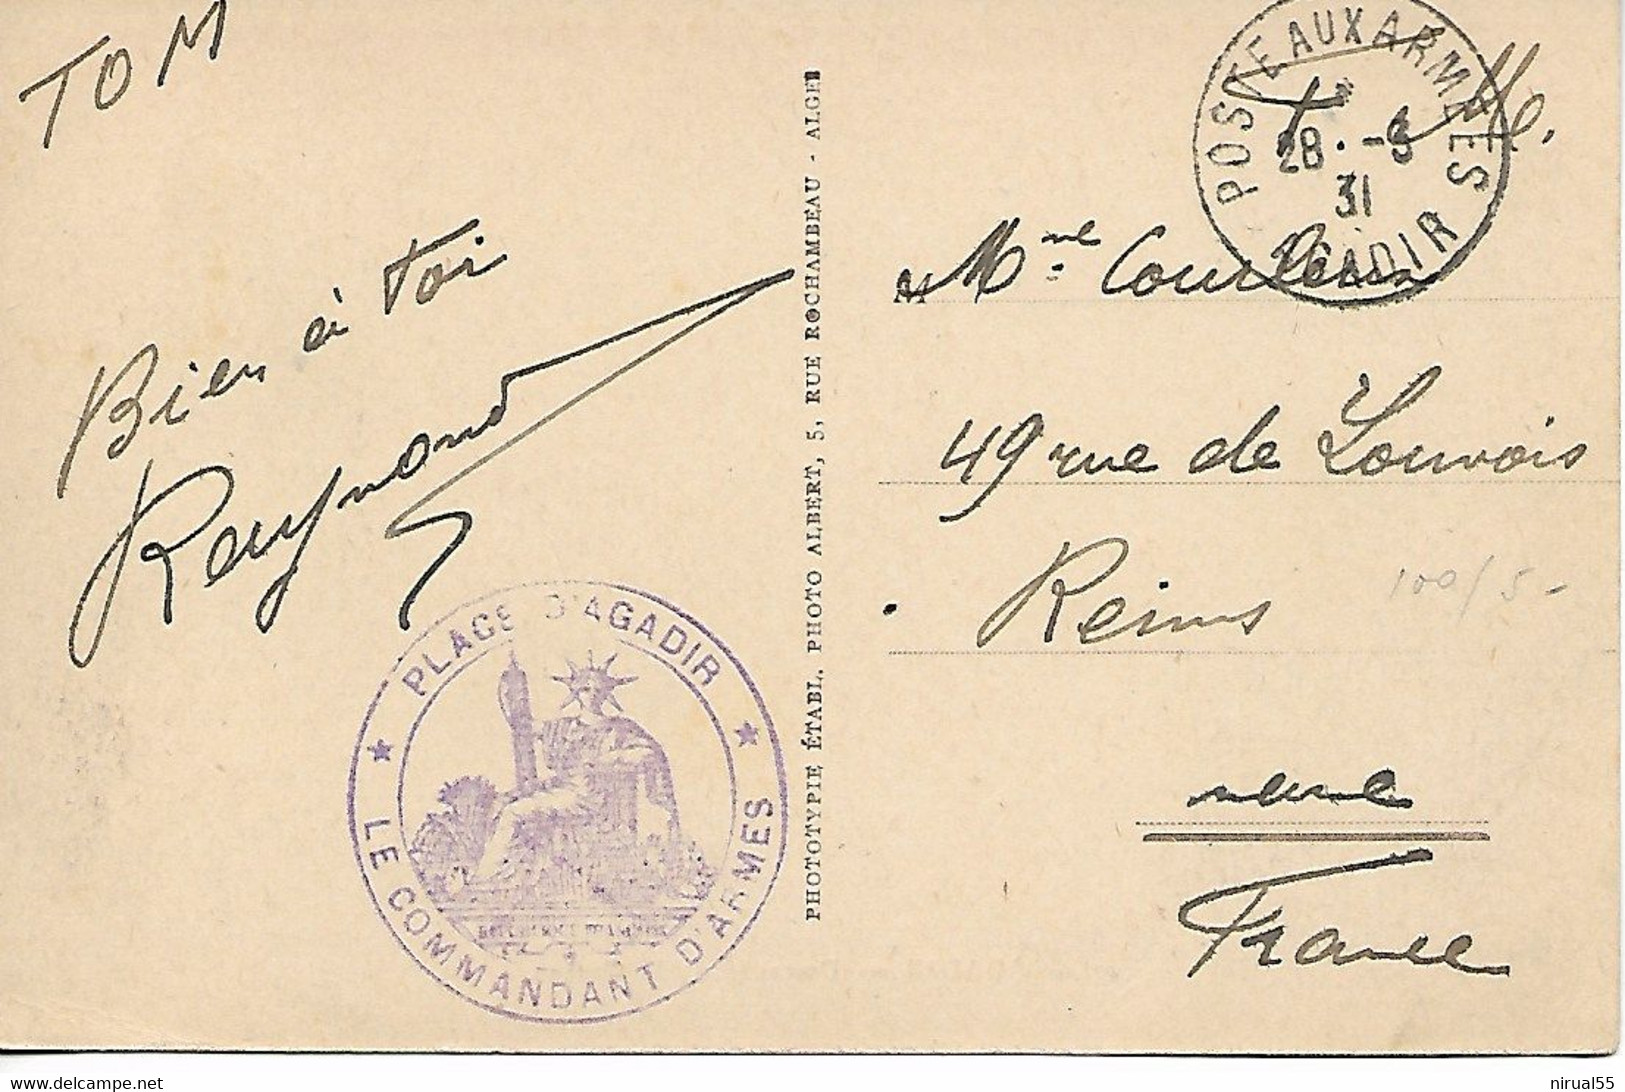 TOM
Bien à toi
Raymond
PLACE D'AGADIR
★ LE COMMANDANT D'ARMES ★
PHOTOTYPIE ÉTABL. PHOTO ALBERT, 5, RUE ROCHAMBEAU - ALGER
POSTE AUX ARMEES
28 · -5
31
AGADIR
Mme
49 rue de Louvois
Reims
100/5-
Marne
France
Delcampe.net
nirual55